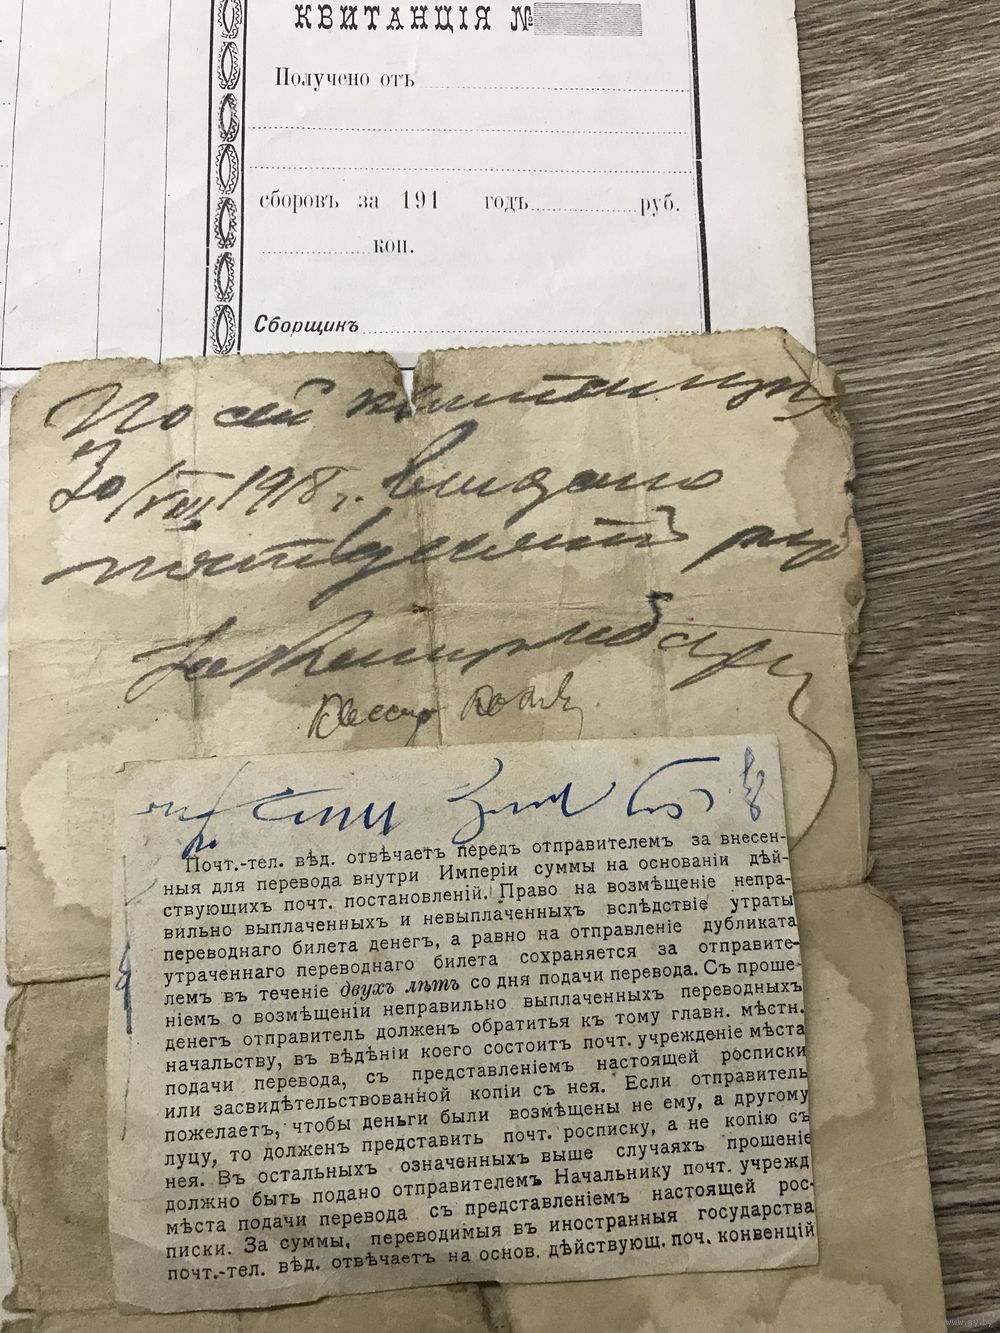 КВИТАНЦІЯ №
Получено отъ
сборовъ за 191 годъ руб.
коп.
Сборщикъ
По сей квитанціи
30/VIII 1918 г. выдано
пятьдесятъ руб
Почт.-тел. вѣд. отвѣчаетъ передъ отправителемъ за внесен-
ныя для перевода внутри Имперіи суммы на основаніи дѣй-
ствующихъ почт. постановленій. Право на возмѣщеніе непра-
вильно выплаченныхъ и невыплаченныхъ вслѣдствіе утраты
переводнаго билета денегъ, а равно на отправленіе дубликата
утраченнаго переводнаго билета сохраняется за отправите-
лемъ въ теченіе двухъ лѣтъ со дня подачи перевода. Съ проше-
ніемъ о возмѣщеніи неправильно выплаченныхъ переводныхъ
денегъ отправитель долженъ обратиться къ тому главн. мѣстн.
начальству, въ вѣдѣніи коего состоитъ почт. учрежденіе мѣста
подачи перевода, съ представленіемъ настоящей росписки
или засвидѣтельствованной копіи съ нея. Если отправитель
пожелаетъ, чтобы деньги были возмѣщены не ему, а другому
лицу, то долженъ представить почт. росписку, а не копію съ
нея. Въ остальныхъ означенныхъ выше случаяхъ прошеніе
должно быть подано отправителемъ Начальнику почт. учрежд
мѣста подачи перевода съ представленіемъ настоящей рос-
писки. За суммы, переводимыя въ иностранныя государства
почт.-тел. вѣд. отвѣчаетъ на основ. дѣйствующ. поч. конвенцій
www.ay.by